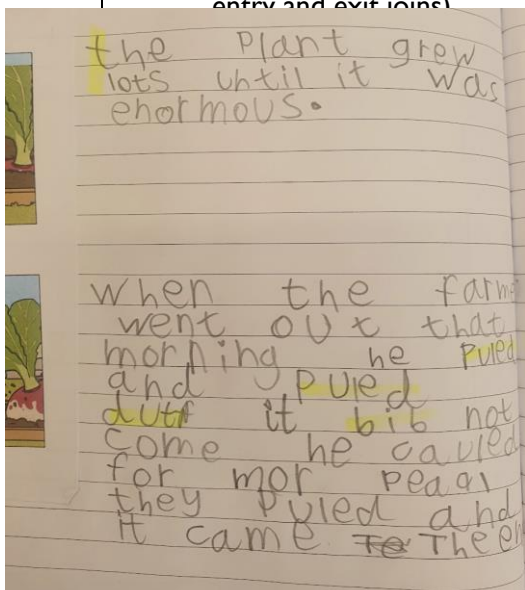 entry and exit joins)
the Plant grew
lots until it was
enormous.
when the farme
went out that
morning he Puled
and Puled
dutf it bib not
come he cauled
for mor peaql
they Puled and
it came The en